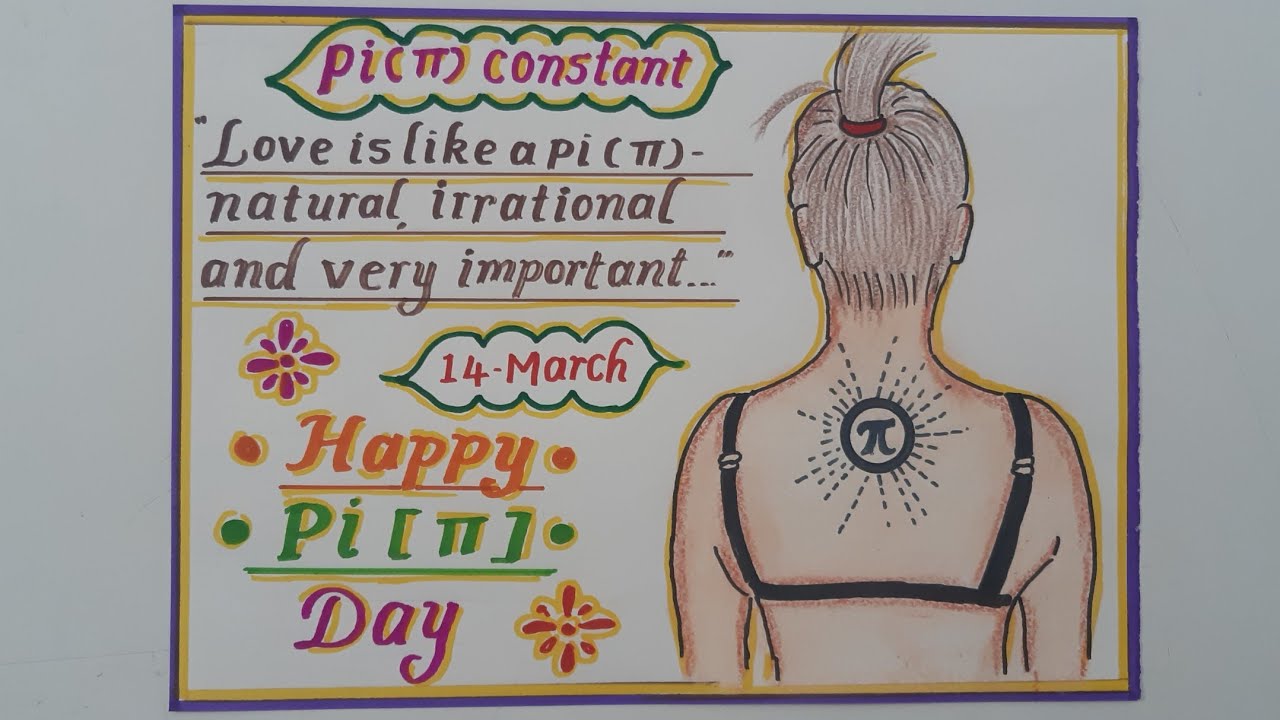 Pi(π) constant
"Love is like a pi (π)-
natural, irrational
and very important..."
14-March
Happy
Pi [π]
Day
π